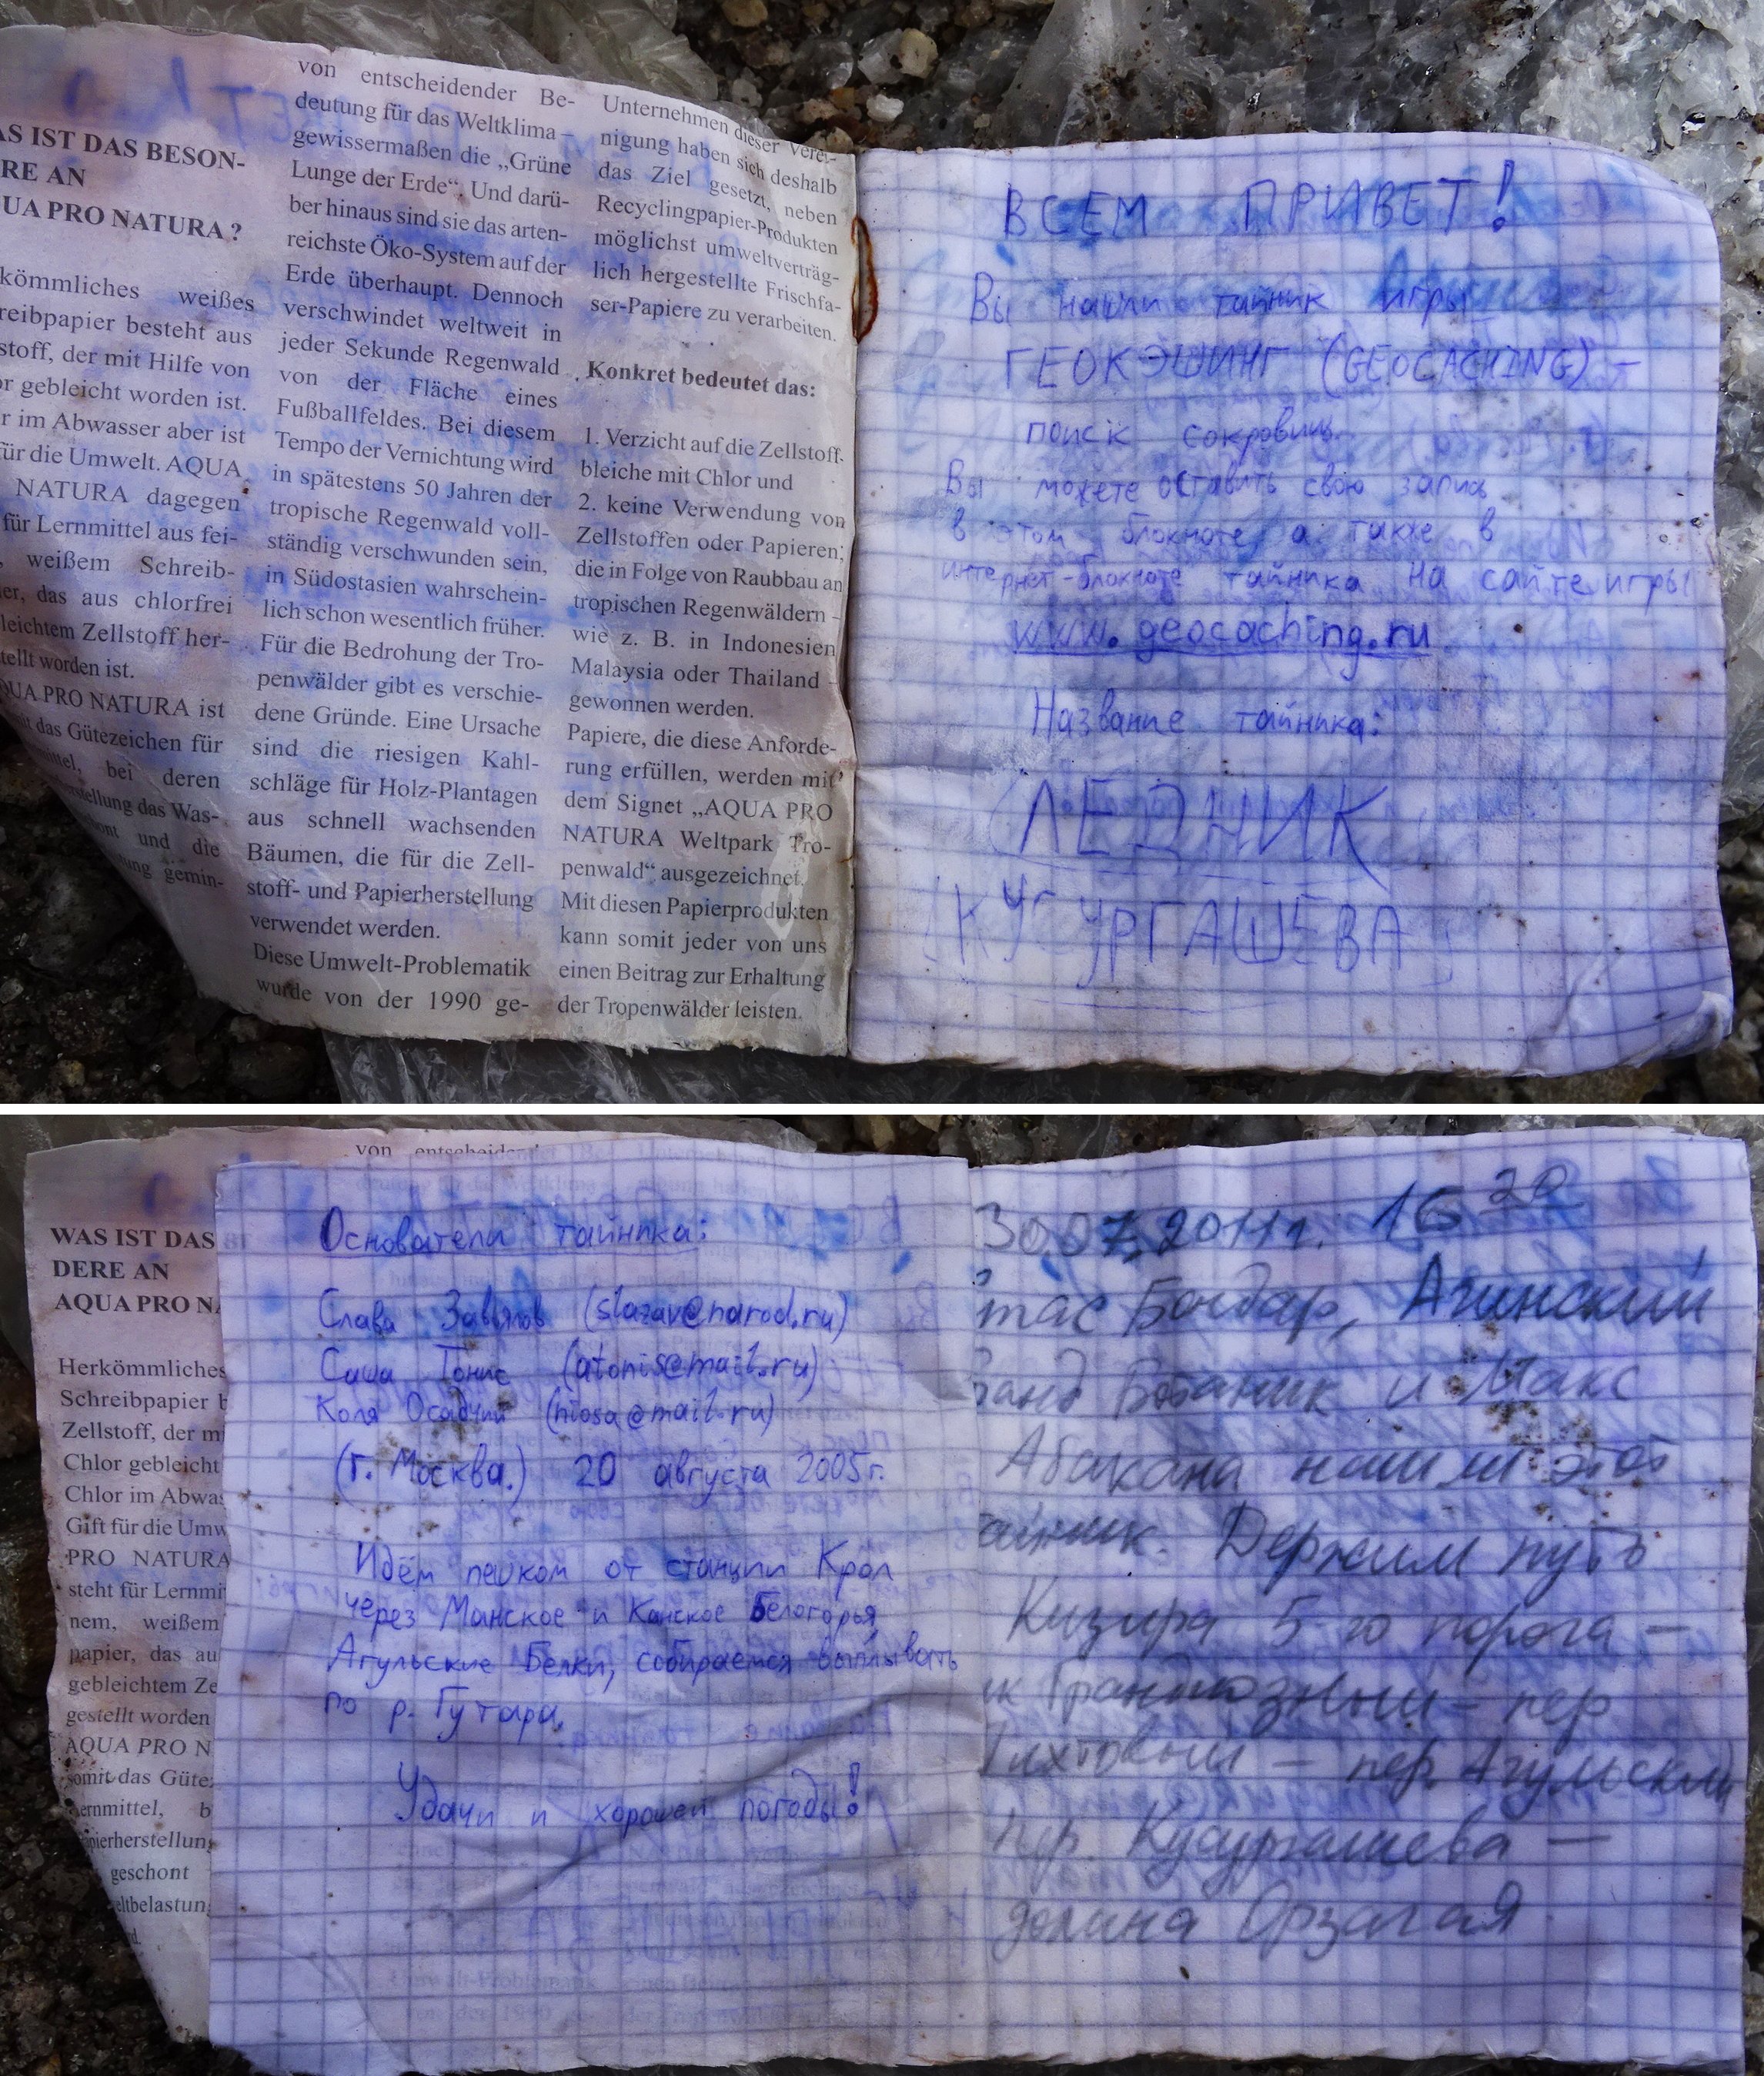 AS IST DAS BESON-
RE AN
UA PRO NATURA ?
kömmliches weißes
reibpapier besteht aus
stoff, der mit Hilfe von
or gebleicht worden ist.
r im Abwasser aber ist
für die Umwelt. AQUA
NATURA dagegen
für Lernmittel aus fei-
, weißem Schreib-
er, das aus chlorfrei
leichtem Zellstoff her-
tellt worden ist.
QUA PRO NATURA ist
it das Gütezeichen für
mittel, bei deren
stellung das Was-
ont und die
ung gemin-
von entscheidender Be-
deutung für das Weltklima –
gewissermaßen die „Grüne
Lunge der Erde“. Und darü-
ber hinaus sind sie das arten-
reichste Öko-System auf der
Erde überhaupt. Dennoch
verschwindet weltweit in
jeder Sekunde Regenwald
von der Fläche eines
Fußballfeldes. Bei diesem
Tempo der Vernichtung wird
in spätestens 50 Jahren der
tropische Regenwald voll-
ständig verschwunden sein,
in Südostasien wahrschein-
lich schon wesentlich früher.
Für die Bedrohung der Tro-
penwälder gibt es verschie-
dene Gründe. Eine Ursache
sind die riesigen Kahl-
schläge für Holz-Plantagen
aus schnell wachsenden
Bäumen, die für die Zell-
stoff- und Papierherstellung
verwendet werden.
Diese Umwelt-Problematik
wurde von der 1990 ge-
Unternehmen dieser Verei-
nigung haben sich deshalb
das Ziel gesetzt, neben
Recyclingpapier-Produkten
möglichst umweltverträg-
lich hergestellte Frischfa-
ser-Papiere zu verarbeiten.
Konkret bedeutet das:
1. Verzicht auf die Zellstoff-
bleiche mit Chlor und
2. keine Verwendung von
Zellstoffen oder Papieren,
die in Folge von Raubbau an
tropischen Regenwäldern –
wie z. B. in Indonesien
Malaysia oder Thailand –
gewonnen werden.
Papiere, die diese Anforde-
rung erfüllen, werden mit
dem Signet „AQUA PRO
NATURA Weltpark Tro-
penwald“ ausgezeichnet.
Mit diesen Papierprodukten
kann somit jeder von uns
einen Beitrag zur Erhaltung
der Tropenwälder leisten.
ВСЕМ ПРИВЕТ!
Вы нашли тайник игры
ГЕОКЭШИНГ (GEOCACHING) –
поиск сокровищ.
Вы можете оставить свою запись
в этом блокноте, а также в
интернет-блокноте тайника на сайте игры
www.geocaching.ru
Название тайника:
ЛЕДНИК
КУСУРГАШЕВА
von entscheidender
WAS IST DAS
DERE AN
AQUA PRO NA
Herkömmliches
Schreibpapier b
Zellstoff, der mi
Chlor gebleicht
Chlor im Abwas
Gift für die Umw
PRO NATURA
steht für Lernmi
nem, weißem
papier, das au
gebleichtem Ze
gestellt worden
AQUA PRO N
somit das Güte
ernmittel, b
pierherstellung
geschont
eltbelastun
d.
Основатели тайника:
Слава Завьялов (slazav@narod.ru)
Саша Тонис (atonis@mail.ru)
Коля Осадчий (niosa@mail.ru)
(г. Москва.) 20 августа 2005г.
Идём пешком от станции Крол
через Манское и Канское Белогорья,
Агульские Белки, собираемся выплывать
по р. Гутара.
Удачи и хорошей погоды!
30.07.2011г. 16 20
тас Бондар, Агинский
Ботаник и Макс
Абакана нашли этот
тайник. Держим путь
Кизира 5-го порога –
ик Грандиозный – пер
Пихтовый – пер. Агульский
пер. Кусургашева –
долина Орзагая